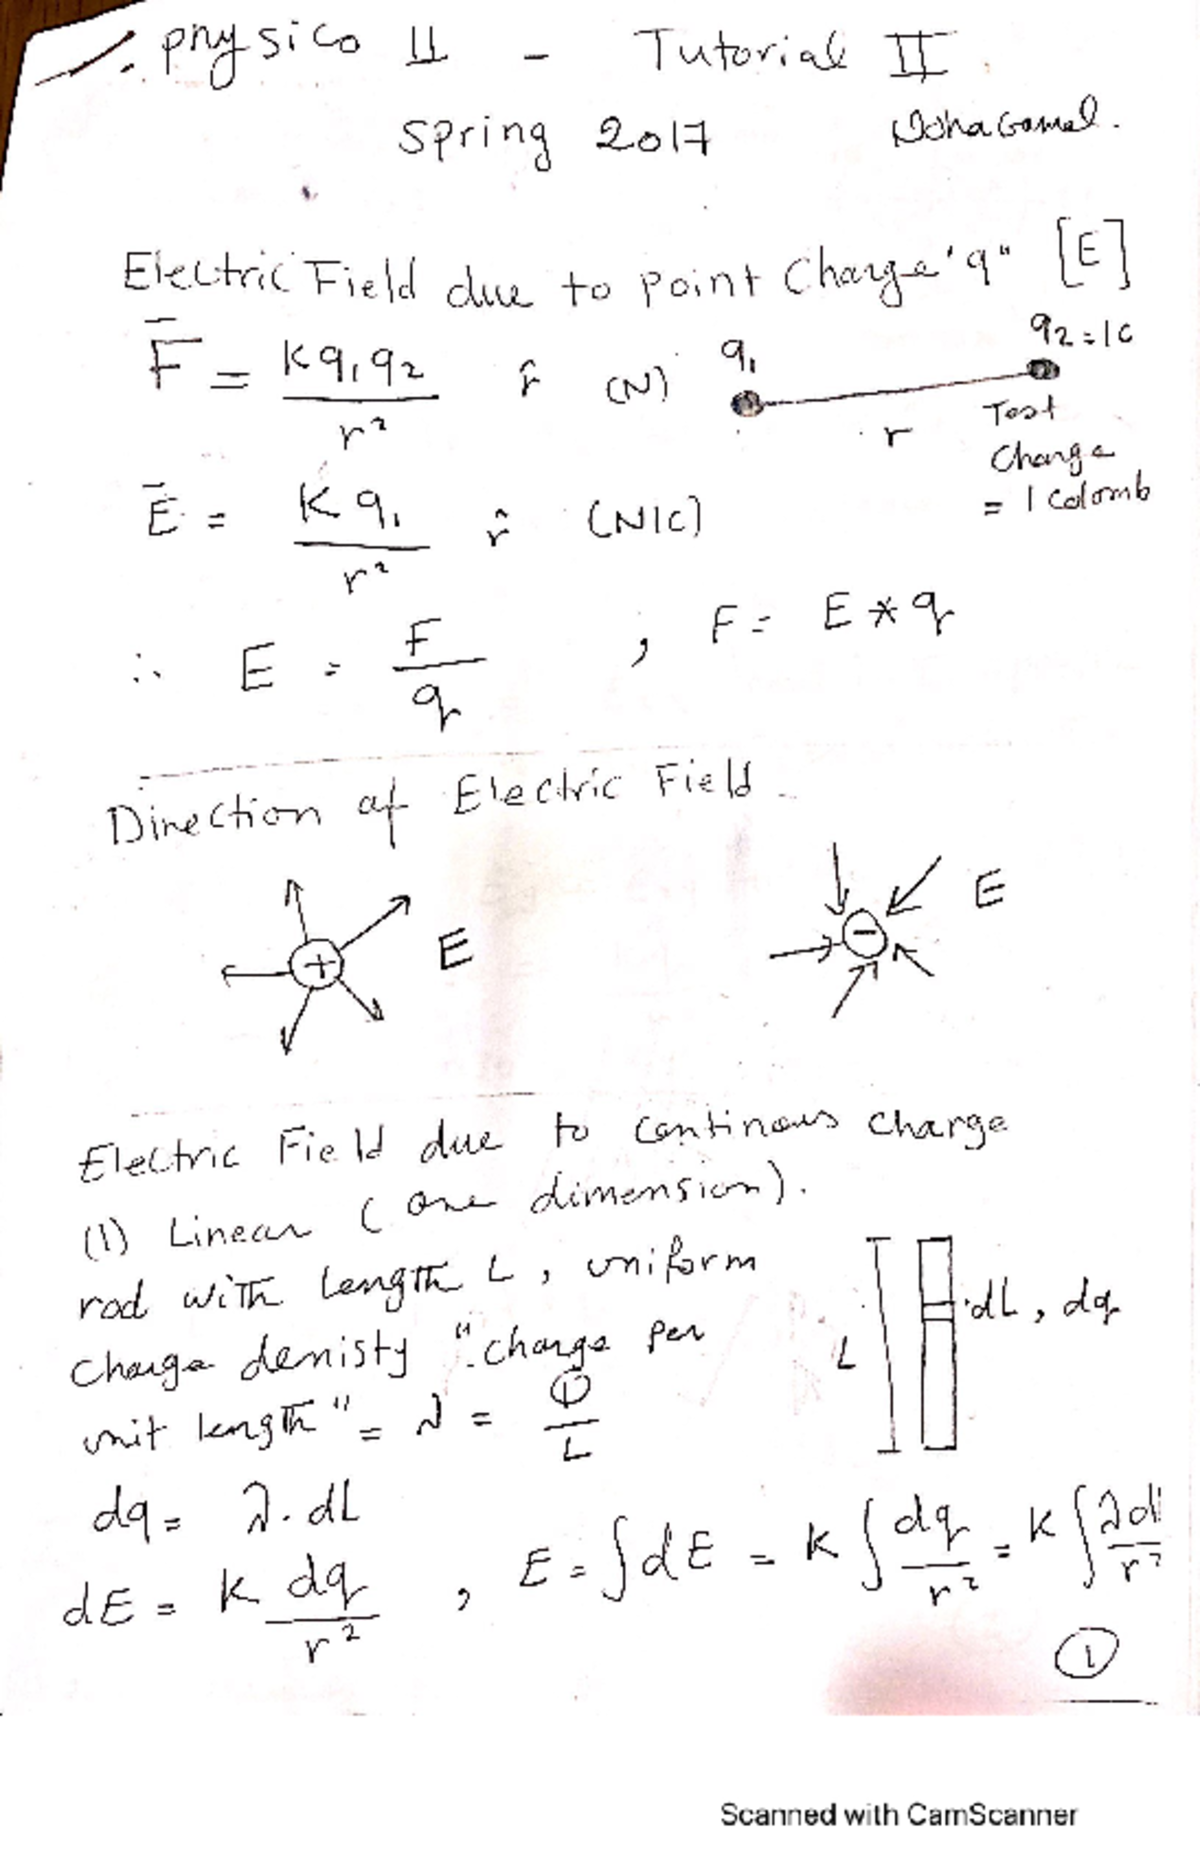 Physics II - Tutorial II
Spring 2017 Noha Gamal.
Electric Field due to point Charge "q" [E]
F̄ = K q₁ q₂ / r² r̂ (N)
q₁ r q₂ = 1C
Test
Charge
= 1 Colomb
Ē = K q₁ / r² r̂ (N/C)
∴ E = F / q , F = E * q
Direction of Electric Field
+ E
- E
Electric Field due to continous charge
(1) Linear (one dimension).
rod with length L, uniform
charge denisty "charge per
unit length" = λ = Q / L
L dL, dq
dq = λ . dL
dE = K dq / r² , E = ∫ dE = K ∫ dq / r² = K ∫ λ dl / r²
1
Scanned with CamScanner